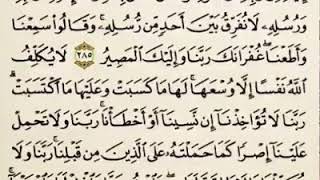 وَرُسُلِهِۦ لَا نُفَرِّقُ بَيْنَ أَحَدٍ مِّن رُّسُلِهِۦ ۚ وَقَالُوا۟ سَمِعْنَا
وَأَطَعْنَا ۖ غُفْرَانَكَ رَبَّنَا وَإِلَيْكَ ٱلْمَصِيرُ ٢٨٥ لَا يُكَلِّفُ
ٱللَّهُ نَفْسًا إِلَّا وُسْعَهَا ۚ لَهَا مَا كَسَبَتْ وَعَلَيْهَا مَا ٱكْتَسَبَتْ ۗ
رَبَّنَا لَا تُؤَاخِذْنَآ إِن نَّسِينَآ أَوْ أَخْطَأْنَا ۚ رَبَّنَا وَلَا تَحْمِلْ
عَلَيْنَآ إِصْرًا كَمَا حَمَلْتَهُۥ عَلَى ٱلَّذِينَ مِن قَبْلِنَا ۚ رَبَّنَا وَلَا